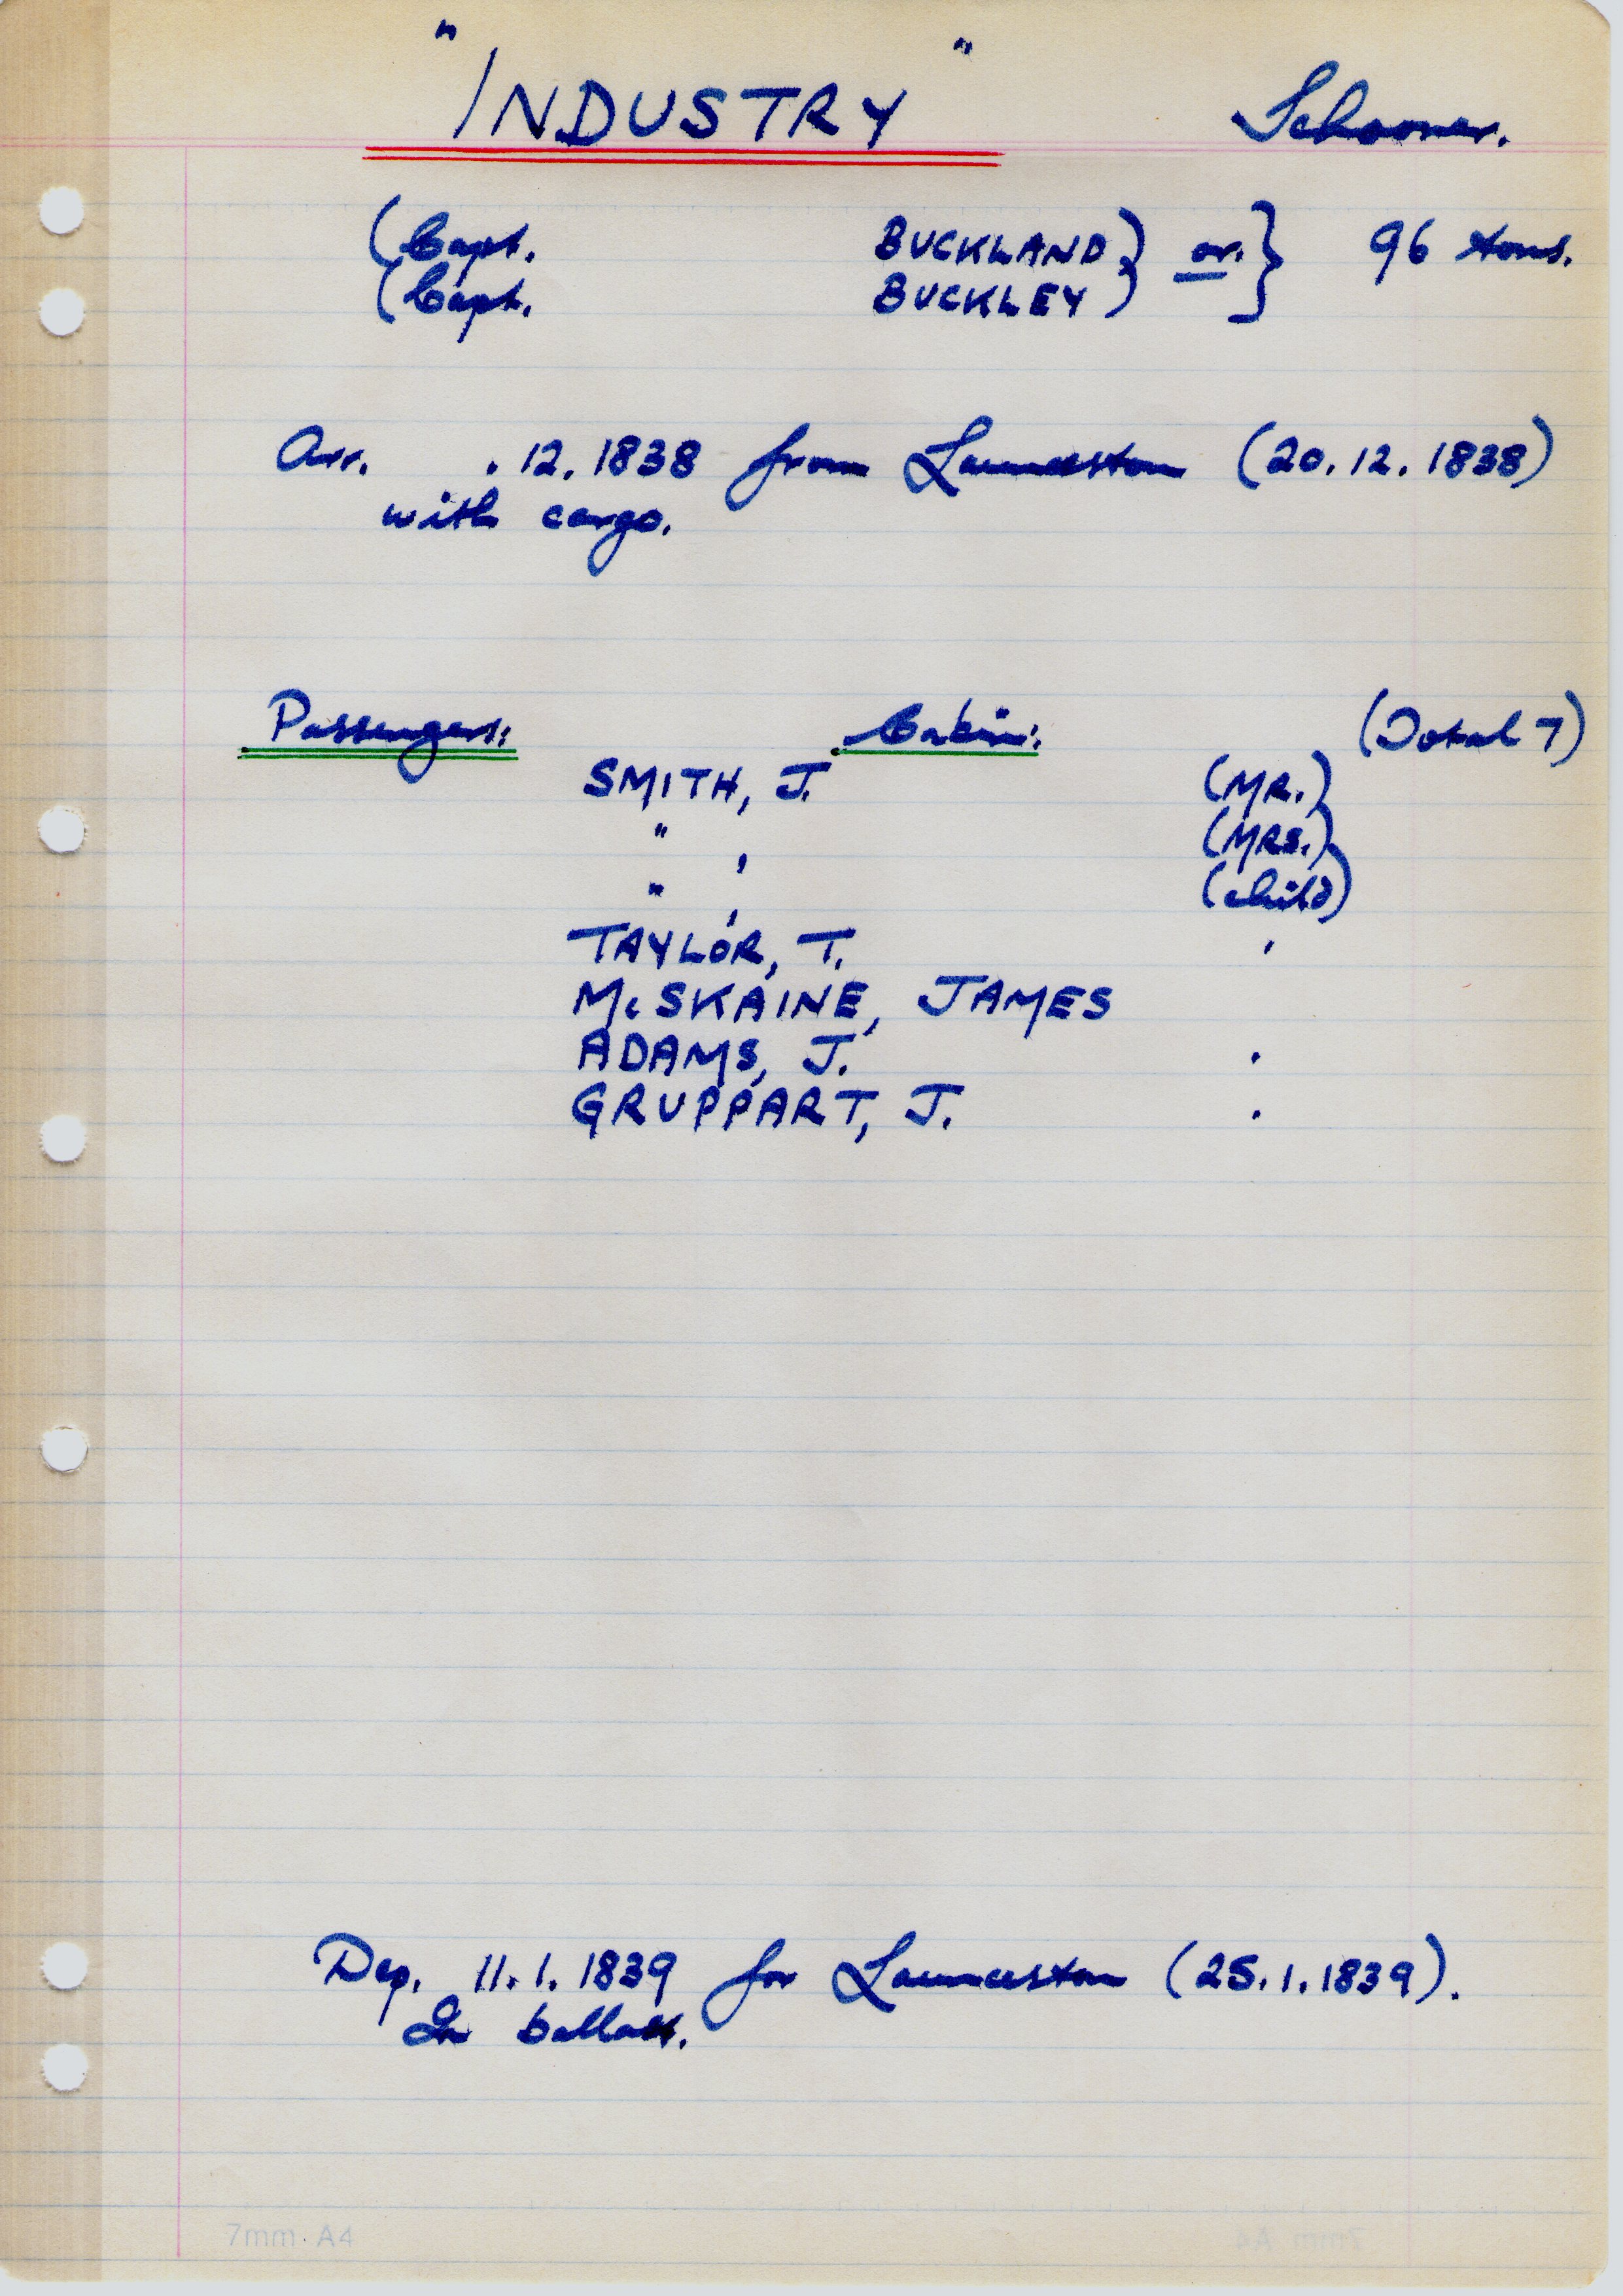 "INDUSTRY" Schooner.
(Capt. BUCKLAND) or } 96 tons.
(Capt. BUCKLEY)
Arr. . 12. 1838 from Launceston (20. 12. 1838)
with cargo.
Passengers: Cabin: (Total 7)
SMITH, J. (MR.)
" , (MRS.)
" , (child)
TAYLOR, T. .
McSKAINE, JAMES
ADAMS, J. .
GRUPPART, J. .
Dep. 11. 1. 1839 for Launceston (25. 1. 1839).
In ballast.
7mm A4